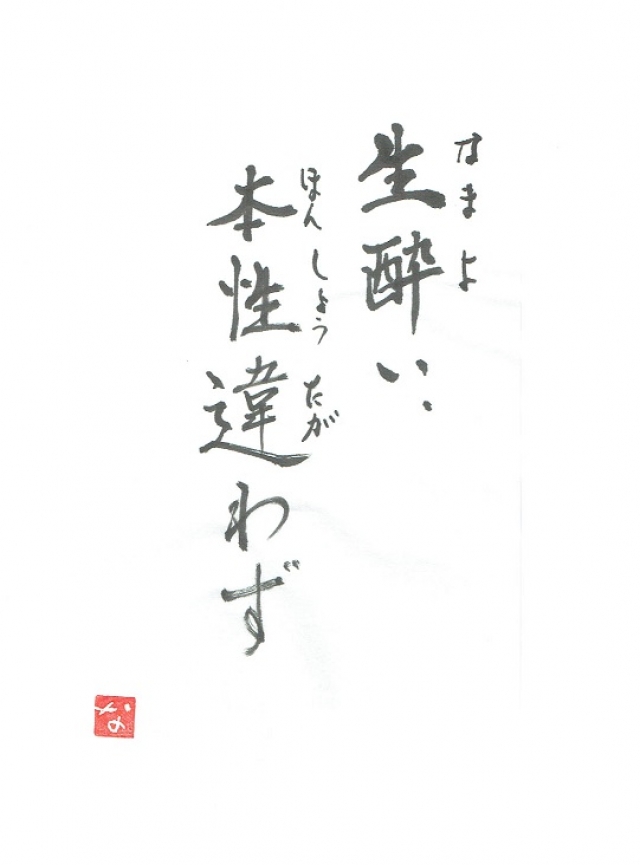 なまよ
生酔い、
ほんしょうたが
本性違わず
な